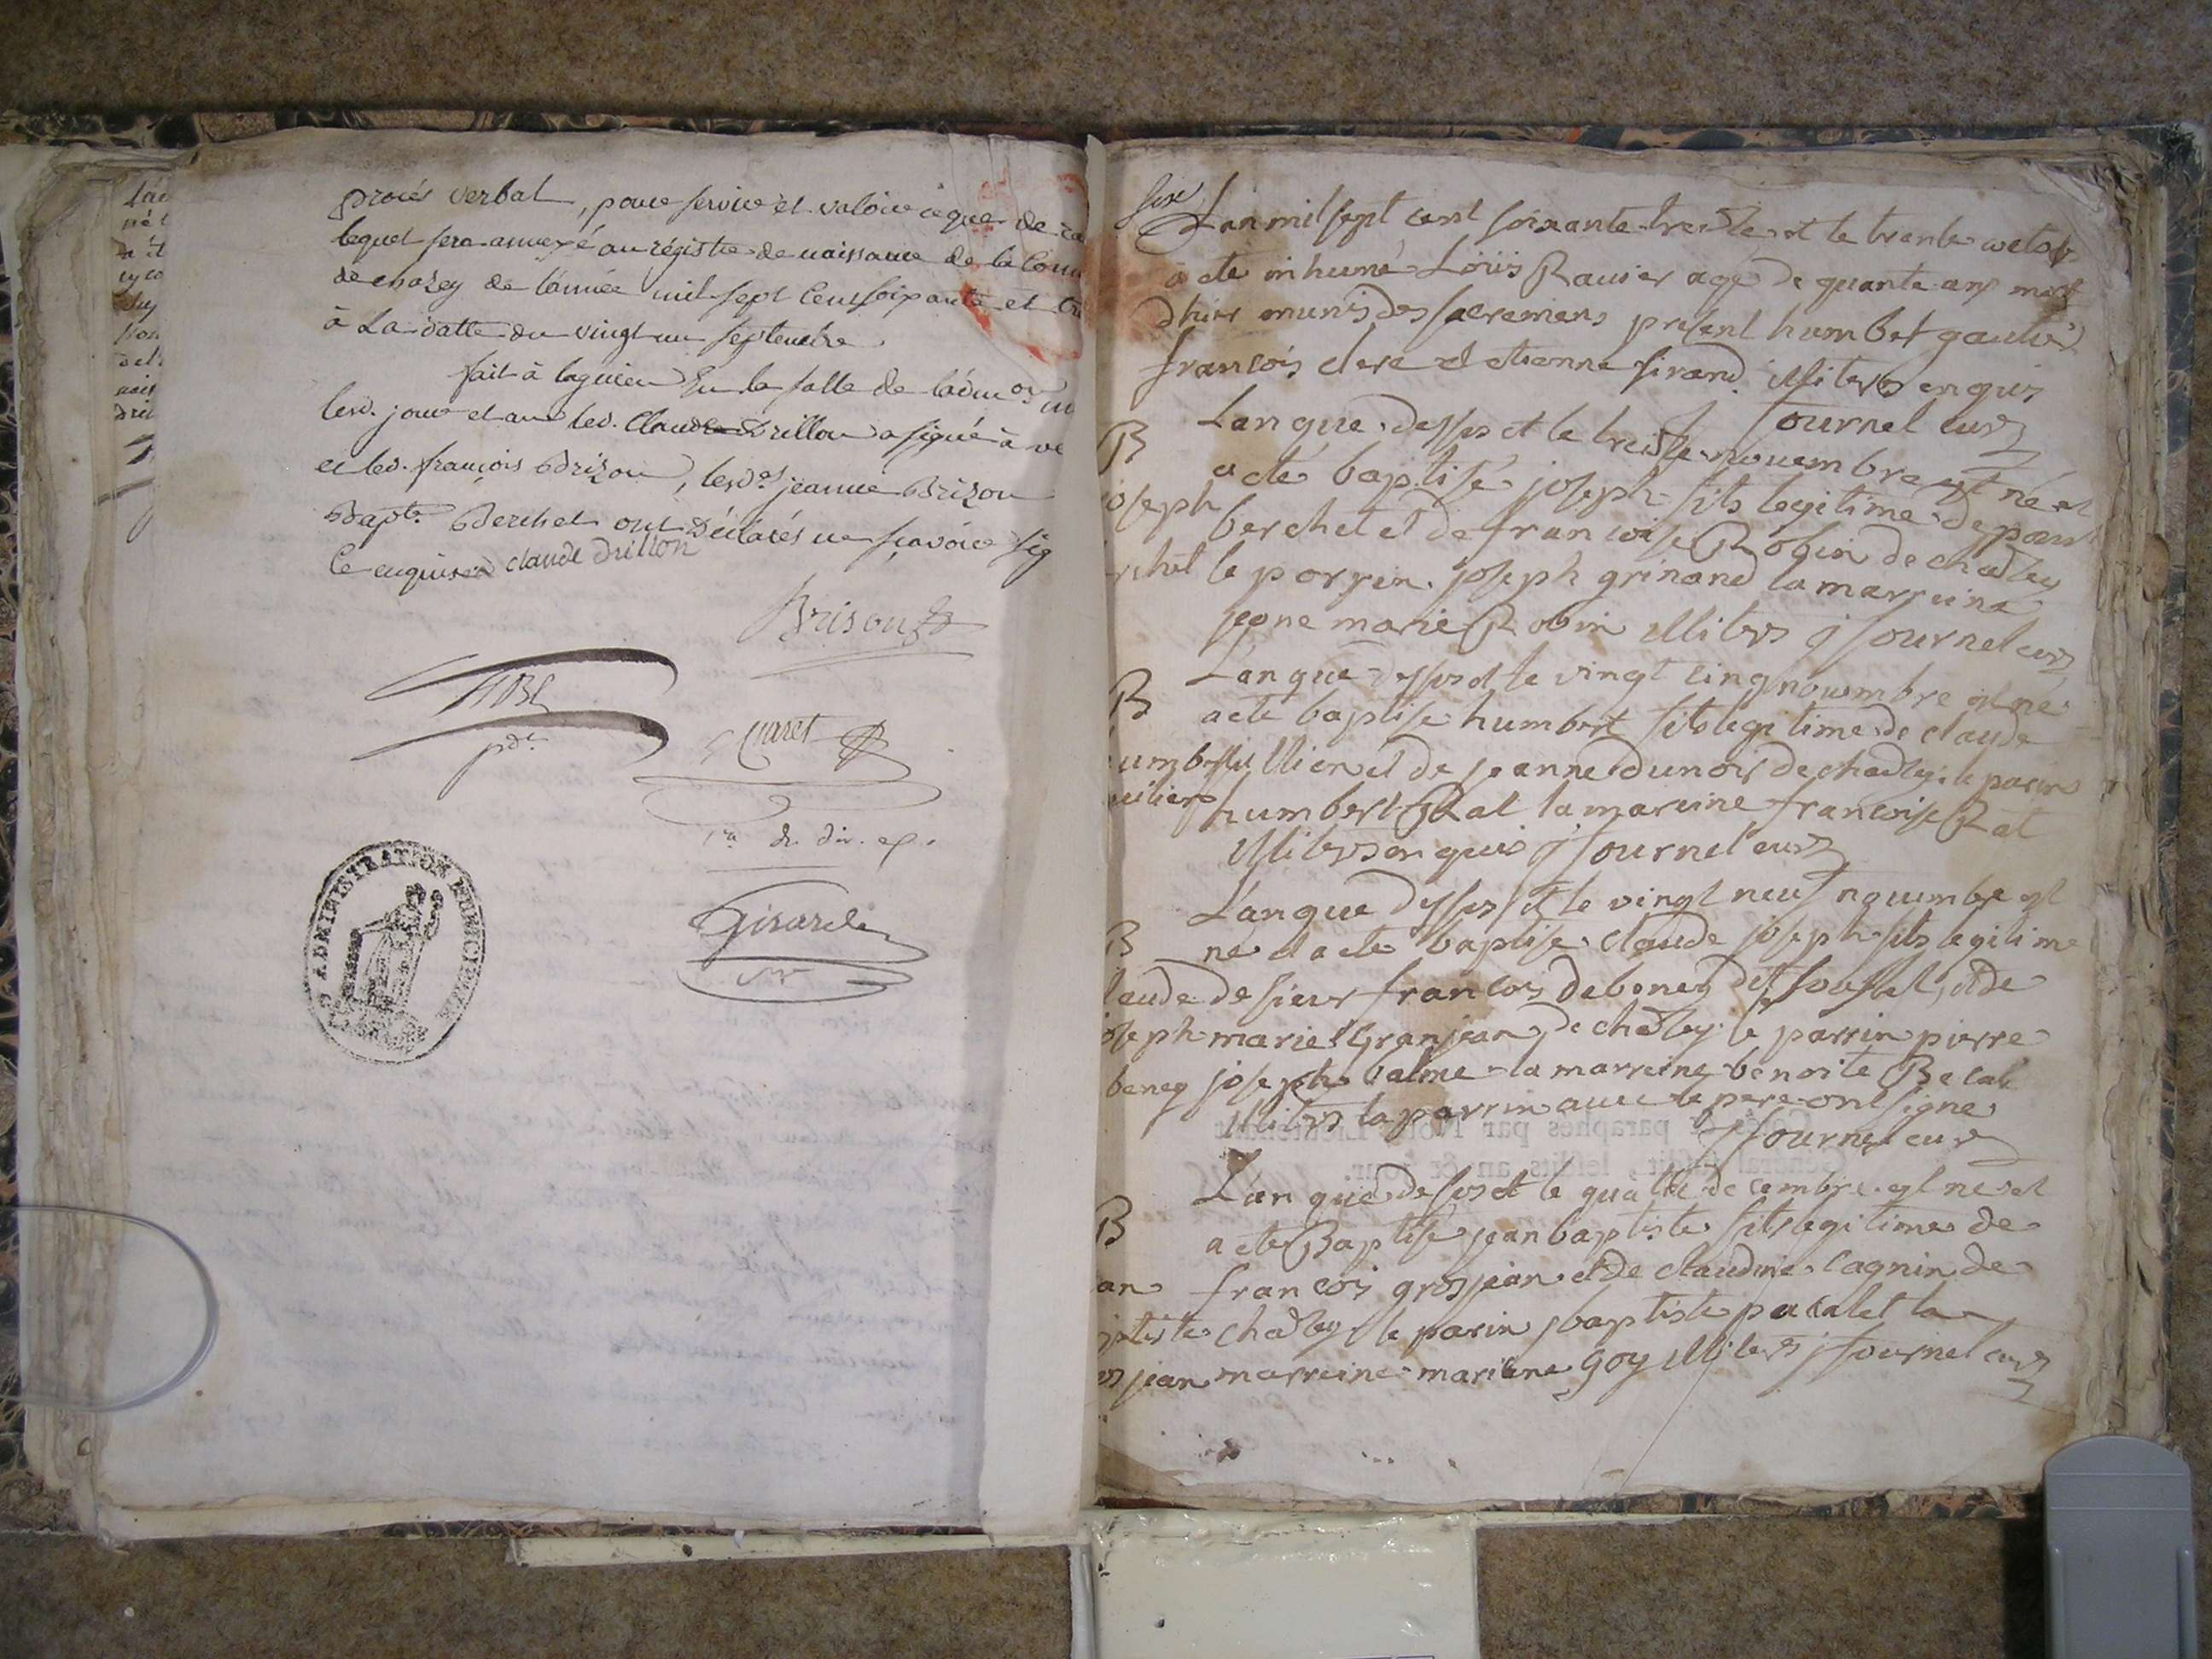 procés verbal, pour servir et valoir ce que de
lequel sera annexé au régistre de naissance de la Com
de chazey de l'année mil sept cent soixante et
à La datte du vingt un septembre
fait à lagnieu En la salle de l'adm.on
lesd. jour et an led. Claude Drillon a signé à
et led. françois Brizon, lesd. jeanne Brizon
Bapt. Berchet ont déclarés ne sçavoir sig
Ce enquis claude drillon
Brison
Girard
ADMINISTRATION MUNICIPALE
six
Lan mil sept cent soixante treiste et le trente octob
a ete inhumé Loüis Ravier agé de quante ans mort
dhier munis des sacremens présent humbert gautier
francois clerc et etienne sirand illiterés enquis
J fournel curé
Lan que dessus et le treiste nouembre est né et
B
a eté baptisé joseph fils legitime de paul
joseph
berchet et de francoise Robin de chadley
rchet
le parrein joseph grinand la marreine
jeane marie Robin illiterés j fournel curé
Lan que dessus et le vingt cinq nouembre est né
B
a eté baptise humbert fils legitime de claude
umber
llier et de jeanne dunois de chadley le parin
humbert Rat la mareine francoise Rat
illiterés en quis j fournel curé
Lan que dessus et le vingt neuf nouembre est
B
né et a eté baptise claude joseph fils legitime
laude
de sieur francois debeney dit soufflet, et de
oseph
marie Granjean de chadley le parrin pierre
beney
joseph balme la marreine benoite Becat
illiterés la parrin avec le pere ont signe
j fournel curé
paraphés par Nous Lieutenant
Général susdit, lesdits an & jour.
Lan que desus et le quatre decembre est ne et
B
a ete Baptisé jean baptiste fils legitime de
an
francois grosjean et de claudine cagnin de
ptiste
chadley le parin jbaptiste pacalet la
os jean
marreine mariane Goy illiterés j fournel curé